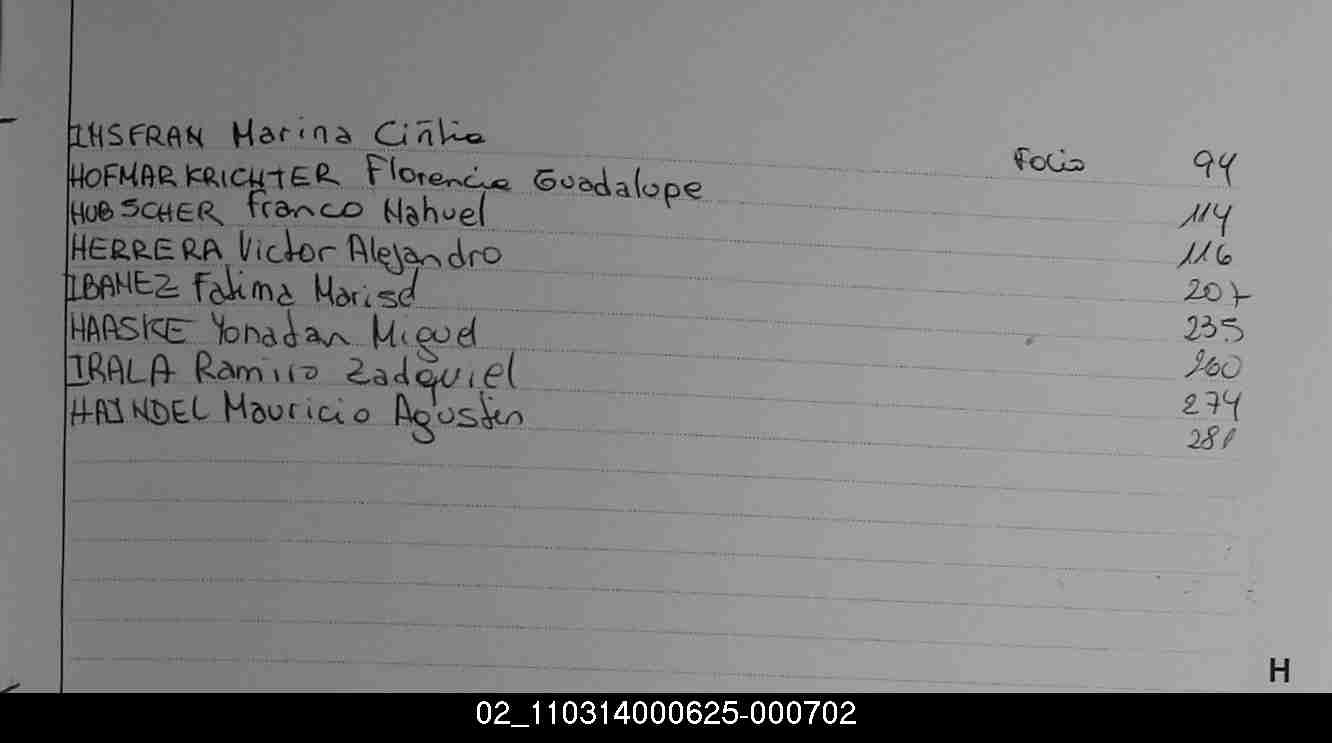 INSFRAN Marina Ciñtia Folio 94
HOFMARKRICHTER Florencia Guadalupe 114
HUBSCHER Franco Nahuel 116
HERRERA Victor Alejandro 207
IBANEZ Fatima Marisol 235
HAASKE Yonadan Miguel 260
IRALA Ramiro Zadquiel 274
HAINDEL Mauricio Agustin 281
H
02_110314000625-000702